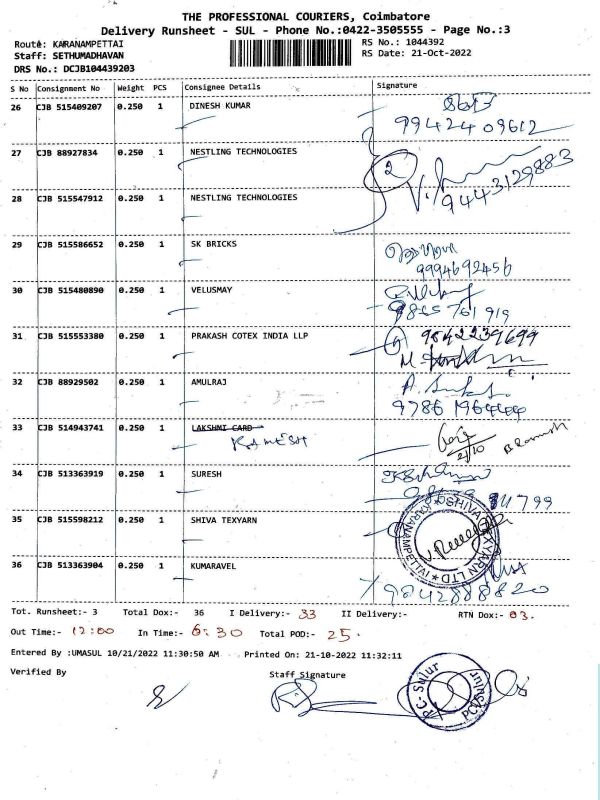 THE PROFESSIONAL COURIERS, Coimbatore
Delivery Runsheet - SUL - Phone No.:0422-3505555 - Page No.:3
Route: KARANAMPETTAI RS No.: 1044392
Staff: SETHUMADHAVAN RS Date: 21-Oct-2022
DRS No.: DCJB104439203
S No Consignment No Weight PCS Consignee Details Signature
26 CJB 515409207 0.250 1 DINESH KUMAR
9942409612
27 CJB 88927834 0.250 1 NESTLING TECHNOLOGIES
2
9443129883
28 CJB 515547912 0.250 1 NESTLING TECHNOLOGIES
29 CJB 515586652 0.250 1 SK BRICKS
9994692456
30 CJB 515480890 0.250 1 VELUSMAY
31 CJB 515553380 0.250 1 PRAKASH COTEX INDIA LLP
9842239699
32 CJB 88929502 0.250 1 AMULRAJ
33 CJB 514943741 0.250 1 LAKSHMI CARD
RAMESH
21/10
34 CJB 513363919 0.250 1 SURESH
35 CJB 515598212 0.250 1 SHIVA TEXYARN
SHIVA TEXYARN LTD KARANAMPETTAI
36 CJB 513363904 0.250 1 KUMARAVEL
9842888820
Tot. Runsheet:- 3 Total Dox:- 36 I Delivery:- 33 II Delivery:- RTN Dox:- 03.
Out Time:- 12:00 In Time:- 6:30 Total POD:- 25.
Entered By :UMASUL 10/21/2022 11:30:50 AM Printed On: 21-10-2022 11:32:11
Verified By Staff Signature
P.C. Sulur